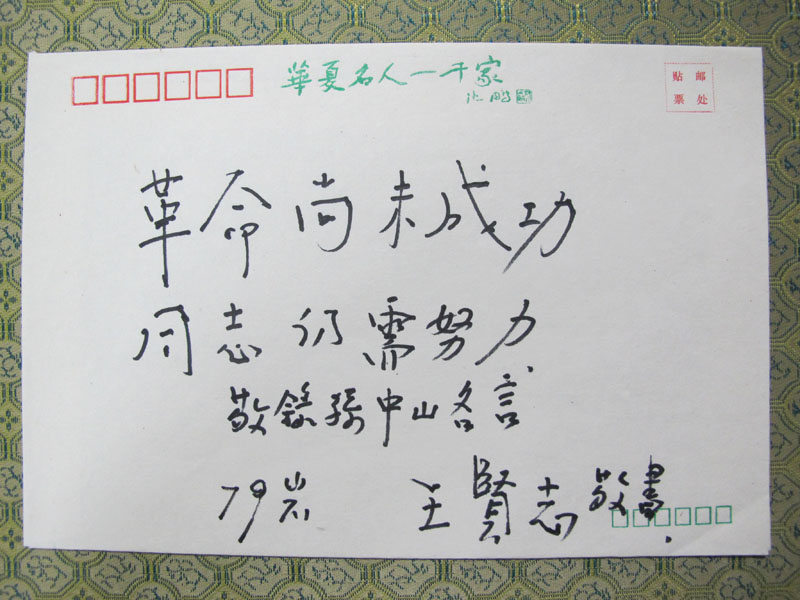 華夏名人一千家
沈鹏
贴 邮
票 处
革命尚未成功
同志仍需努力
敬錄孫中山名言
79岁 王賢志敬書